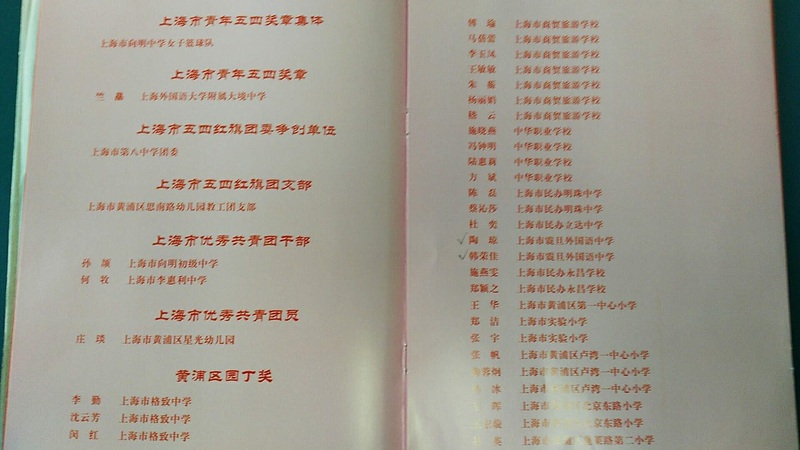 上海市青年五四奖章集体
上海市向明中学女子篮球队
上海市青年五四奖章
上海外国语大学附属大境中学
上海市五四红旗团委争创单位
上海市第八中学团委
上海市五四红旗团支部
上海市黄浦区思南路幼儿园教工团支部
上海市优秀共青团干部
孙 颉 上海市向明初级中学
何 牧 上海市李惠利中学
上海市优秀共青团员
庄 瑛 上海市黄浦区星光幼儿园
黄浦区园丁奖
李 勤 上海市格致中学
沈云芳 上海市格致中学
闵 红 上海市格致中学
傅 瑜 上海市商贸旅游学校
马蓓蕾 上海市商贸旅游学校
李玉凤 上海市商贸旅游学校
王敏敏 上海市商贸旅游学校
朱 上海市商贸旅游学校
杨丽娟 上海市商贸旅游学校
云 上海市商贸旅游学校
施晓燕 中华职业学校
冯钟明 中华职业学校
陆惠莉 中华职业学校
方 斌 中华职业学校
陈 磊 上海市民办明珠中学
蔡沁莎 上海市民办明珠中学
杜 奕 上海市民办立达中学
陶 琼 上海市震旦外国语中学
韩荣佳 上海市震旦外国语中学
施燕雯 上海市民办永昌学校
郑颖之 上海市民办永昌学校
王 华 上海市黄浦区第一中心小学
郑 洁 上海市实验小学
张 宇 上海市实验小学
张 帆 上海市黄浦区卢湾一中心小学
上海市黄浦区卢湾一中心小学
冰 上海市 卢湾一中心小学
上海市 北京东路小学
上海市 北京东路小学
上海市 路第二小学